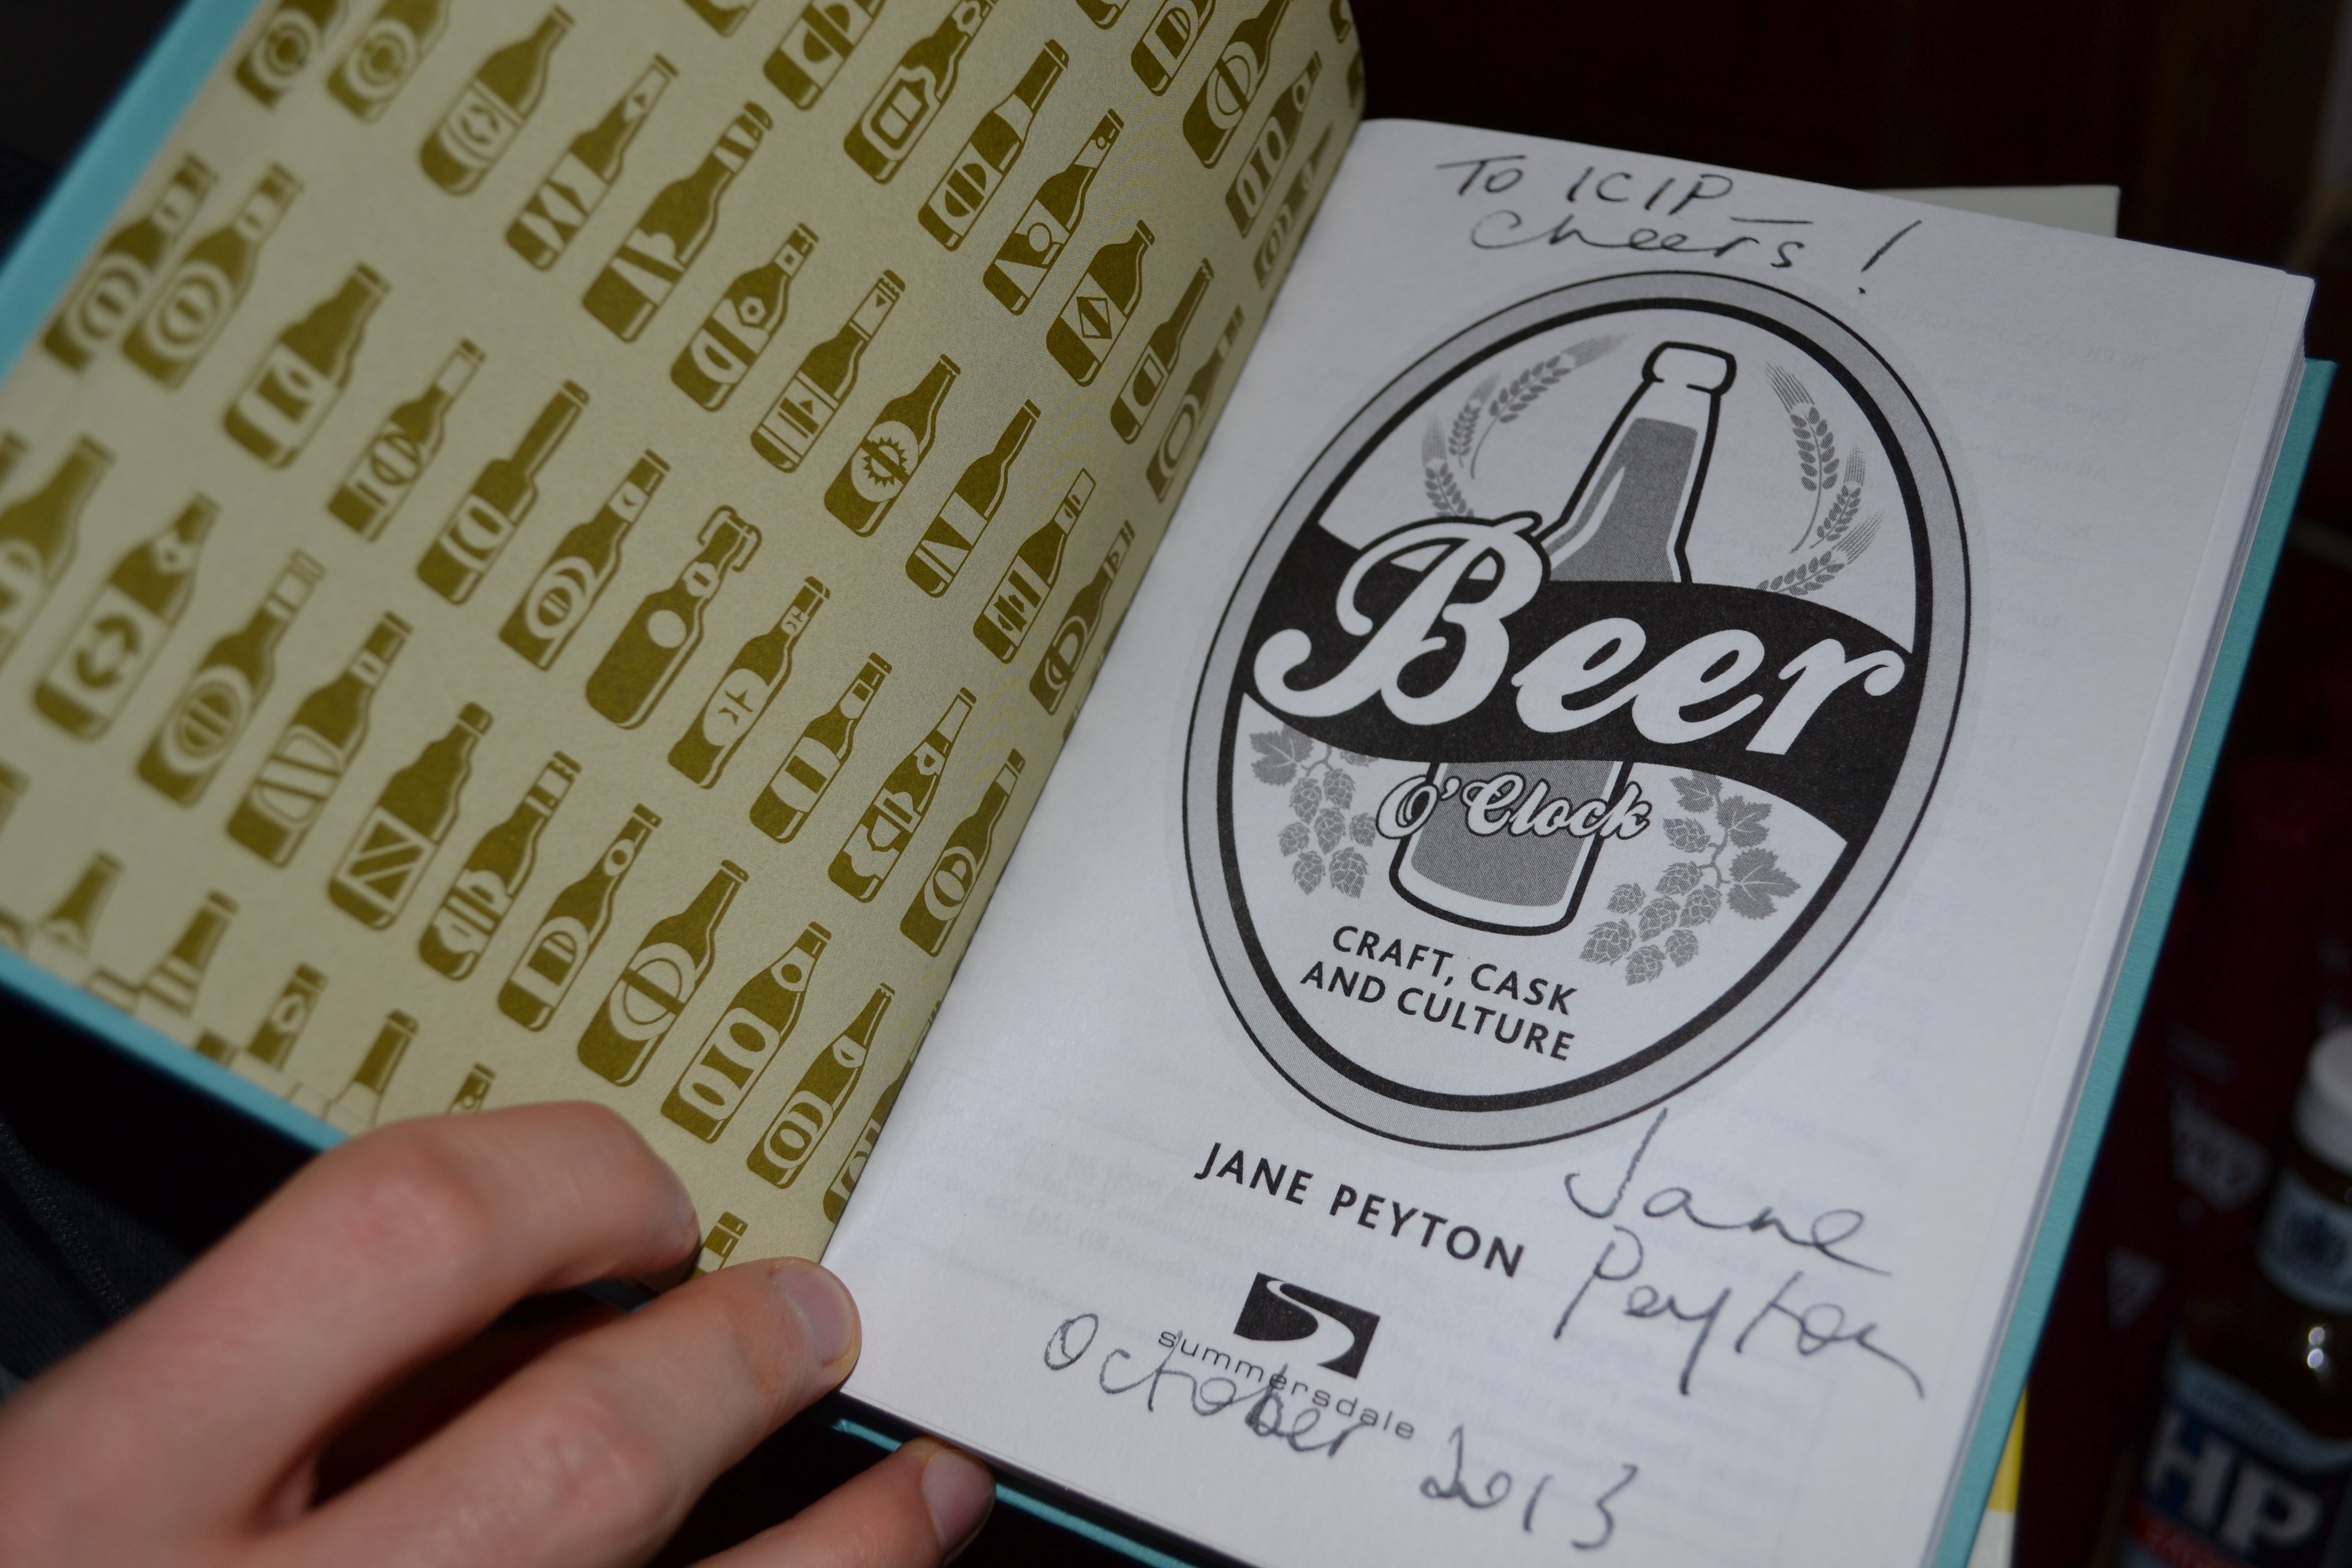 To ICIP —
cheers!
Beer
O'Clock
CRAFT, CASK
AND CULTURE
JANE PEYTON
Jane
Peyton
summersdale
October 2013
HP